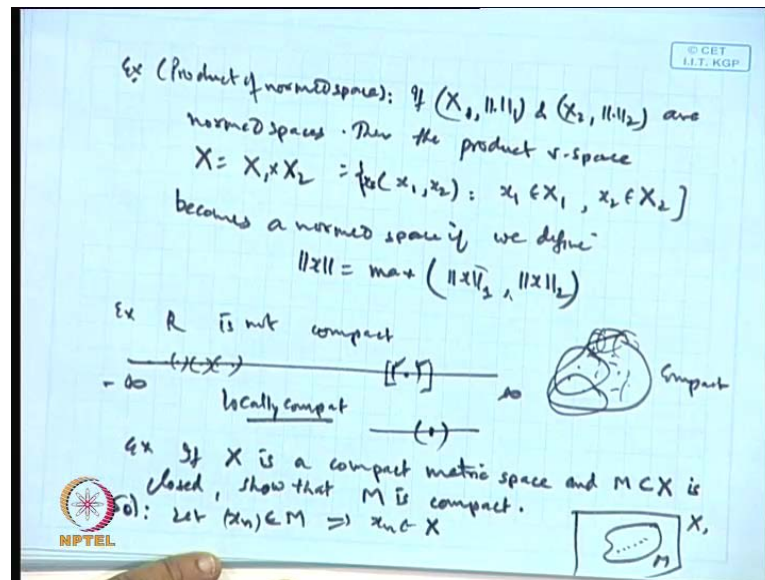 © CET
I.I.T. KGP
Ex (Product of normed space): If (X₁, ||.||₁) & (X₂, ||.||₂) are
normed spaces. Then the product v-space
X = X₁ × X₂ = {x=(x₁, x₂) : x₁ ∈ X₁, x₂ ∈ X₂]
becomes a normed space if we define
||x|| = max (||x||₁, ||x||₂)
Ex R is not compact
-∞ ∞
Compact
locally compat
Ex If X is a compact metric space and M ⊂ X is
closed, show that M is compact.
Sol: Let (xn) ∈ M ⇒ xn ∈ X
X,
M
NPTEL